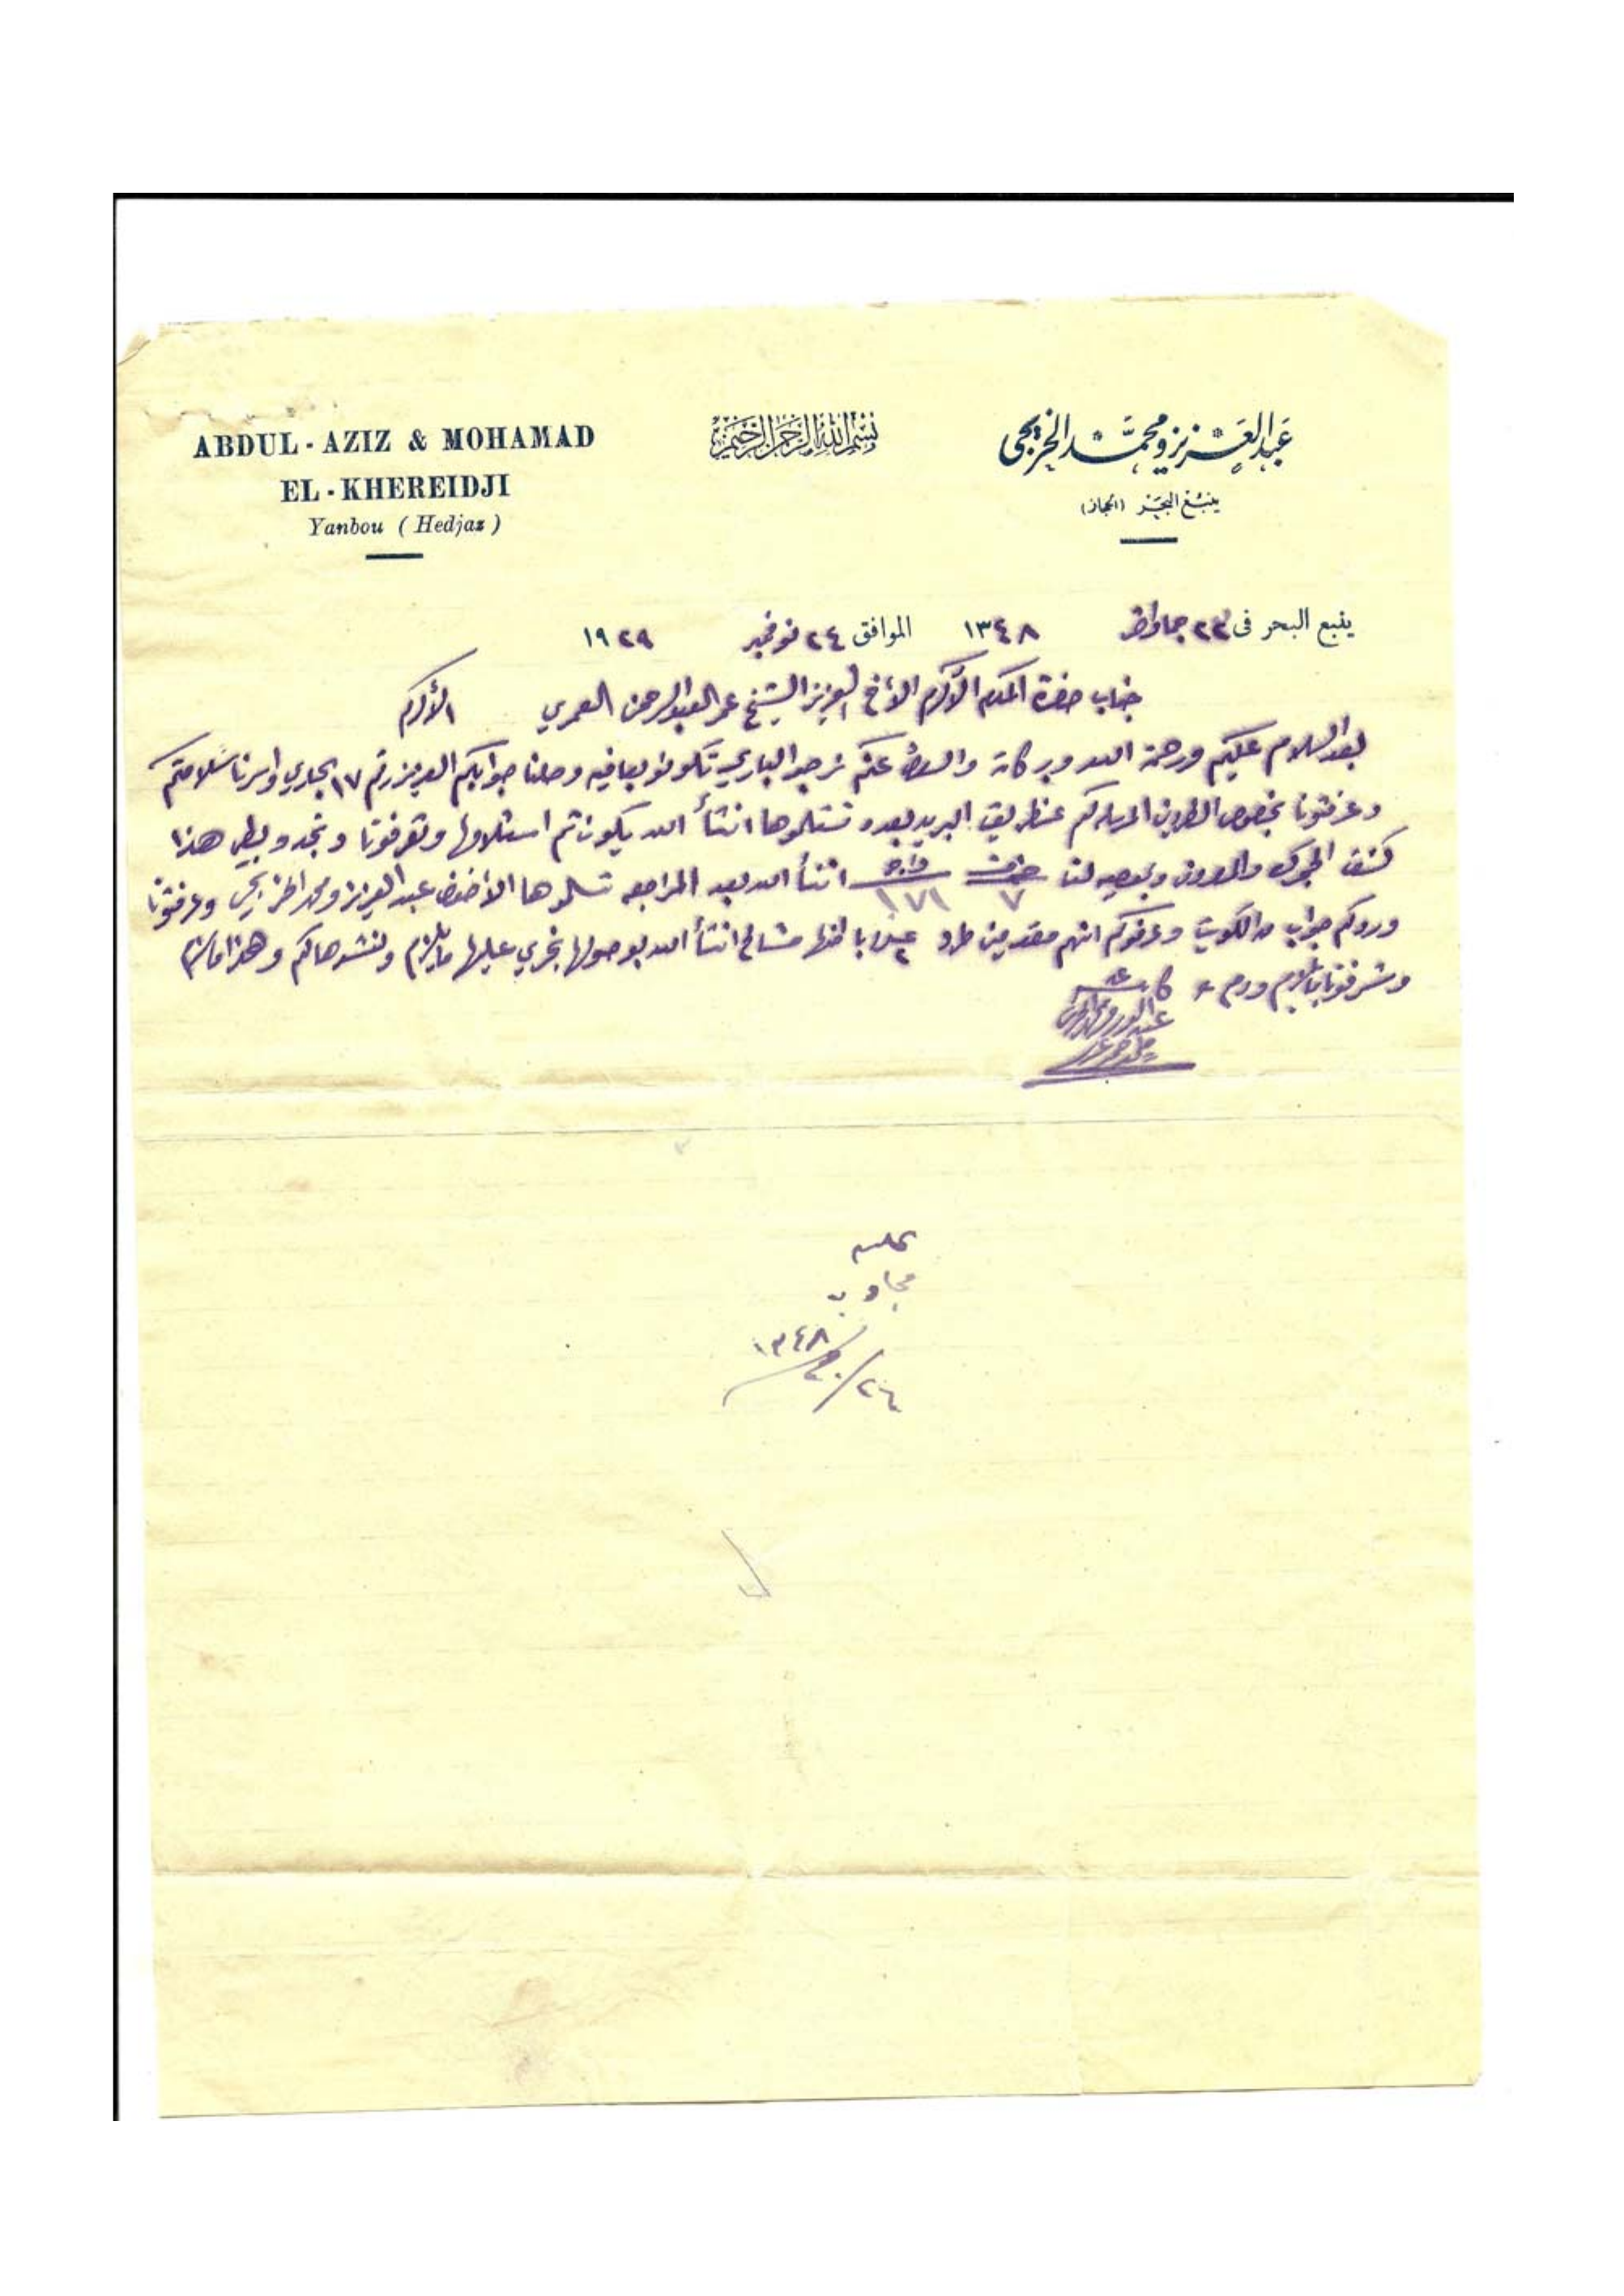 ABDUL - AZIZ & MOHAMAD
EL - KHEREIDJI
Yanbou ( Hedjaz )
بسم الله الرحمن الرحيم
عبد العزيز ومحمد الخريجي
ينبع البحر (الحجاز)
ينبع البحر في ٢٢ جماد ١٣٤٨ الموافق ٢٤ نوفمبر ١٩٢٩
جناب حضرة المكرم الأكرم الأخ العزيز الشيخ عمر العبدالرحمن العمري الأكرم
بعد السلام عليكم ورحمة الله وبركاته والسؤال عنكم نرجو الباري تكونو بعافيه وصلنا جوابكم العزيز رقم ١٧ الجاري واسرنا سلامتكم
وعرفتونا بخصوص الطردين المرسله لكم عنطريق البريد بعده تستلموها انشأ الله يكون تم استلامها وتعرفونا وتجدو بطي هذا
كشف الجمرك والعدون وبموجبه لنا ٧ ١٧١ انشأ الله بعد المراجعه تسلموها الأخ عبد العزيز ومحمد الخريجي وعرفتونا
وردكم جواب من الكويت وعرفوكم انهم مقدمين طرود ٢ مشالح انشأ الله بوصولها نجري عليها مايلزم ونشدها لكم وهذا مالزم
وشرفونا بمايلزم ودم
مجاوب
٢٤ / ١٣٤٨